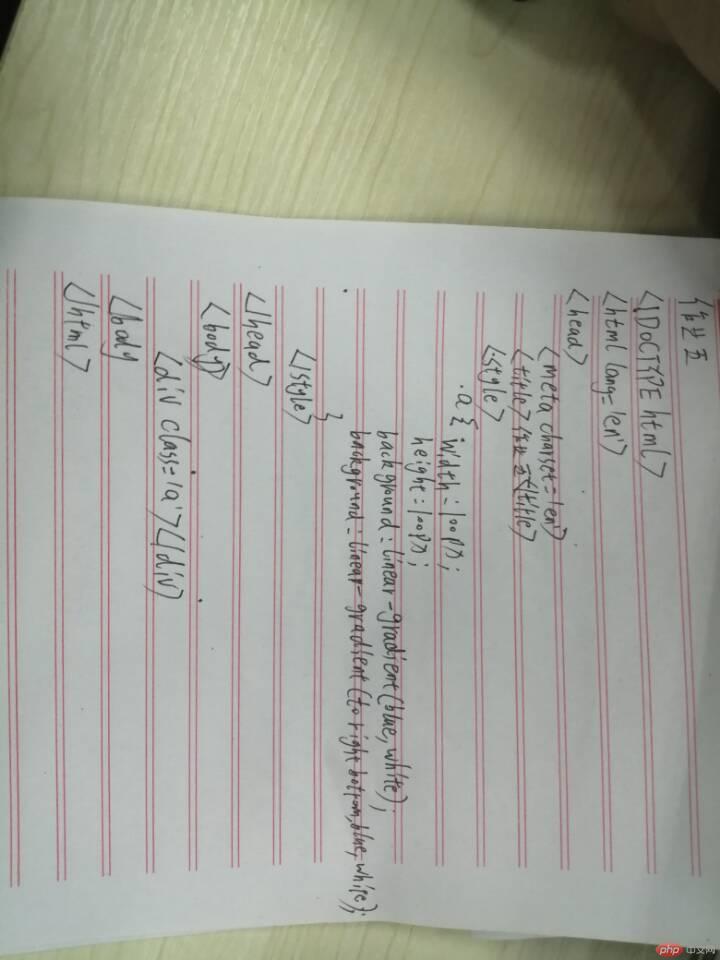 作业五
<!DOCTYPE html>
<html lang='en'>
<head>
<meta charset='en'>
<title>作业五</title>
<style>
.a { width:100px;
height:100px;
background:linear-gradient(blue,white);
background:linear-gradient(to right bottom,blue,white);
}
</style>
</head>
<body>
<div class='a'></div>
</body
</html>
php 中文网